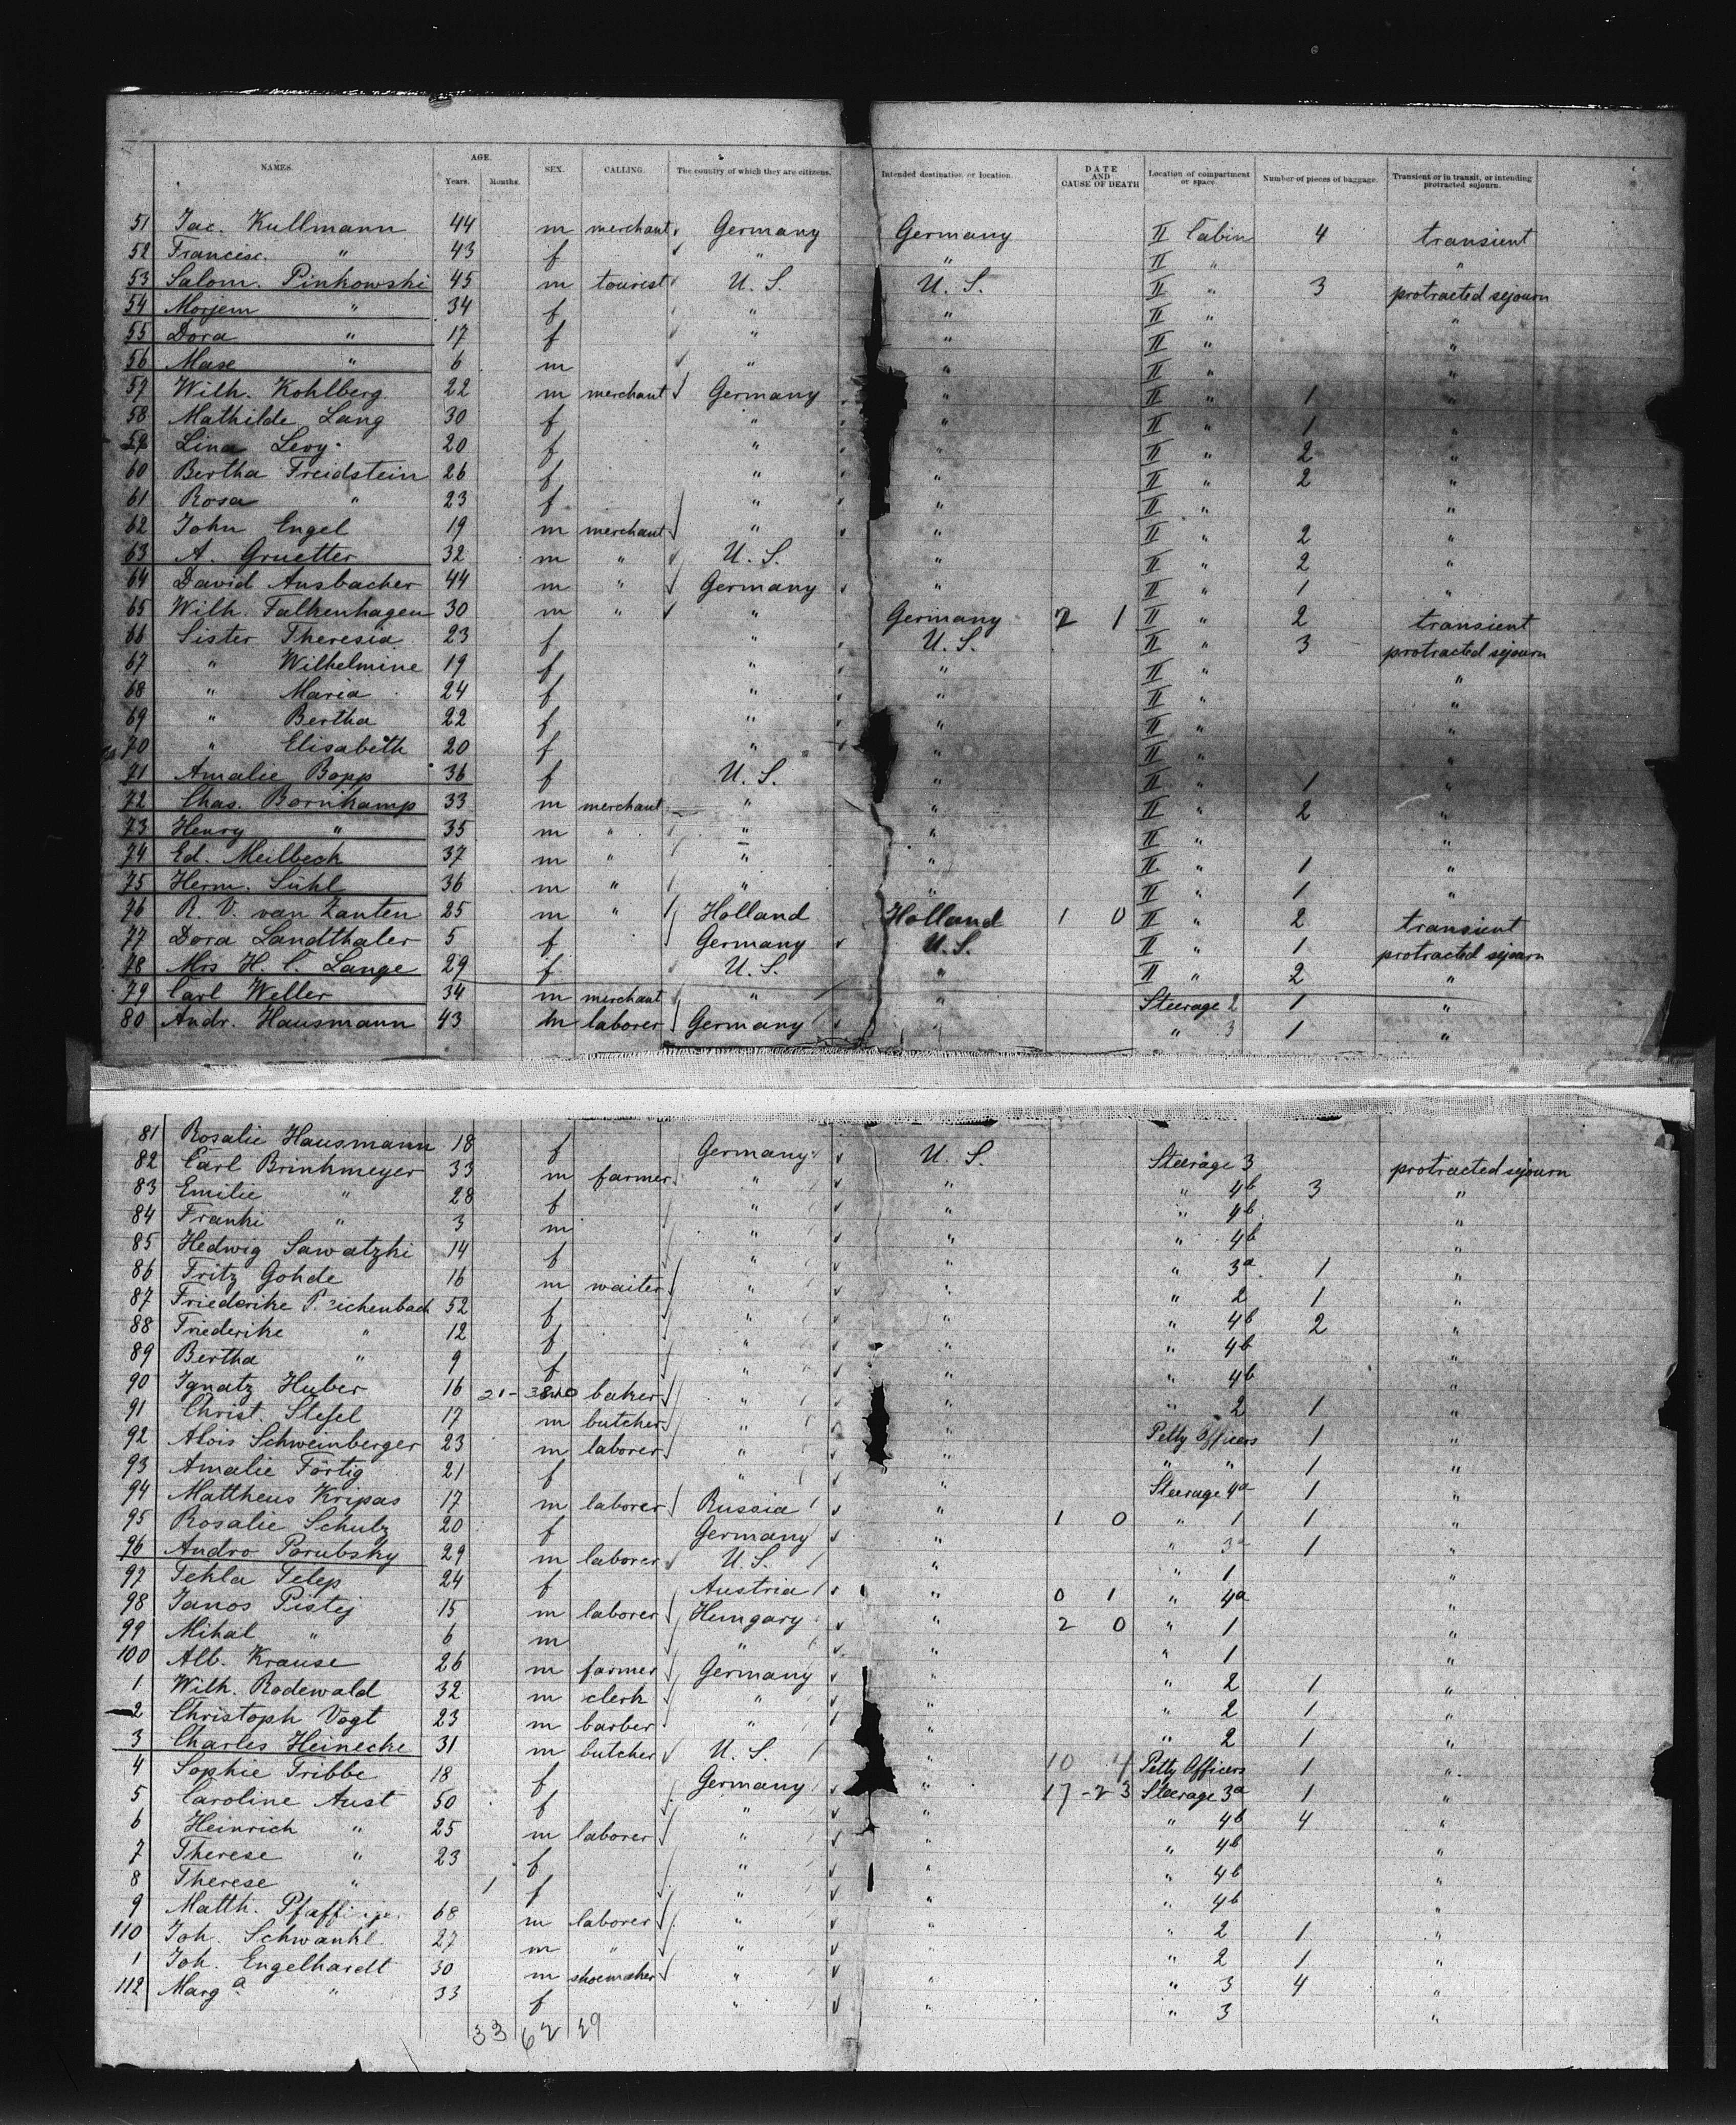 NAMES. AGE. Years. Months. SEX. CALLING. The country of which they are citizens. Intended destination or location. DATE AND CAUSE OF DEATH Location of compartment or space. Number of pieces of baggage. Transient or in transit, or intending protracted sejourn.
51 Jac. Kullmann 44 m merchant Germany Germany II Cabin 4 transient
52 Francisc. " 43 f " " II " "
53 Salom. Pinkowski 45 m tourist U. S. U. S. II " 3 protracted sejourn
54 Morjem " 34 f " " II " "
55 Dora " 17 f " " II " "
56 Mase " 6 m " " II " "
57 Wilh. Kohlberg 22 m merchant Germany " II " 1 "
58 Mathilde Lang 30 f " " II " 1 "
59 Lina Levy 20 f " " II " 2 "
60 Bertha Freudstein 26 f " " II " 2 "
61 Rosa " 23 f " " II " "
62 John Engel 19 m merchant " " II " 2 "
63 A. Gruetter 32 m " U. S. " II " 2 "
64 David Ansbacher 44 m " Germany " II " 1 "
65 Wilh. Falkenhagen 30 m " " Germany 2 1 II " 2 transient
66 Sister Theresia 23 f " U. S. II " 3 protracted sejourn
67 " Wilhelmine 19 f " " II " "
68 " Maria 24 f " " II " "
69 " Bertha 22 f " " II " "
70 " Elisabeth 20 f " " II " "
71 Amalie Bopp 36 f U. S. " II " 1 "
72 Chas. Bornkamp 33 m merchant " " II " 2 "
73 Henry " 35 m " " " II " "
74 Ed. Meilbeck 37 m " " " II " 1 "
75 Herm. Sühl 36 m " " " II " 1 "
76 R. V. van Zanten 25 m " Holland Holland 1 0 II " 2 transient
77 Dora Landthaler 5 f Germany U. S. II " 1 protracted sejourn
78 Mrs H. C. Lange 29 f U. S. " II " 2 "
79 Carl Weller 34 m merchant " " Steerage 2 1 "
80 Andr. Hausmann 43 m laborer Germany " " 3 1 "
81 Rosalie Hausmann 18 f Germany U. S. Steerage 3 protracted sejourn
82 Carl Brinkmeyer 33 m farmer " " " 4b 3 "
83 Emilie " 28 f " " " 4b "
84 Franki " 3 m " " " 4b "
85 Hedwig Sawatzki 14 f " " " 3a 1 "
86 Fritz Gohde 16 m waiter " " " 2 1 "
87 Friederike 52 f " " " 4b 2 "
88 Friederike " 12 f " " " 4b "
89 Bertha " 9 f " " " 4b "
90 Ignatz Huber 16 baker " " " 2 1 "
91 Christ. Stefel 17 m butcher " " Petty Officers 1 "
92 Alois Schweinberger 23 m laborer " " " " 1 "
93 Amalie Förtig 21 f " " Steerage 4a 1 "
94 Mattheus Kripas 17 m laborer Russia " 1 0 " 1 1 "
95 Rosalie Schulz 20 f Germany " " 3a 1 "
96 Andro Porubsky 29 m laborer U. S. " " 1 "
97 Tekla Telep 24 f Austria " 0 1 " 4a "
98 Janos Pistej 15 m laborer Hungary " 2 0 " 1 "
99 Mihal " 6 m " " " 1 "
100 Alb. Krause 26 m farmer Germany " " 2 1 "
1 Wilh. Rodewald 32 m clerk " " " 2 1 "
2 Christoph Vogt 23 m barber " " " 2 1 "
3 Charles Heinecke 31 m butcher U. S. " 10 4 Petty Officers 1 "
4 Sophie Tribbe 18 f Germany " 17-23 Steerage 3a 1 "
5 Caroline Aust 50 f " " " 4b 4 "
6 Heinrich " 25 m laborer " " " 4b "
7 Therese " 23 f " " " 4b "
8 Therese " 1 f " " " 4b "
9 Matth. 68 m laborer " " " 2 1 "
110 Joh. Schwankl 27 m " " " " 2 1 "
1 Joh. Engelhardt 30 m shoemaker " " " 3 4 "
112 Marga " 33 f " " " 3 "
33 62 29